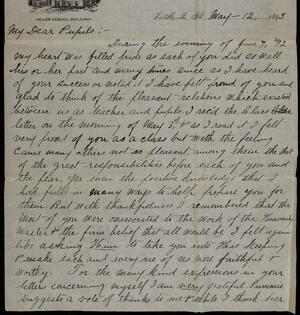 ALLEN SCHOOL BUILDING
May-12, 1893
My Dear Pupils:-
During the evening of June 7, '92
my heart was filled pride as each of you did so well
his or her part and many times since as I have heard
of your success or noted it I have felt proud of you and
glad to think of the pleasant relations which existed
between us as teacher and pupils I rec'd the class
letter on the morning of May 3d & as I read it I felt
very proud of you as a class but with the feeling
came many others not so pleasant among them the
of the great responsibilities before each of you and
the fear, yea even the positive knowledge that I
had failed in many ways to help prepare you for
them. But with thankfulness I remembered that the
most of you were consecrated to the work of the Heavenly
Master & the firm belief that all would be I felt again
like asking Him to take you into His keeping
& make each and every one of you more faithful &
worthy. For the many kind expressions in your
letters concerning myself I am very grateful.
suggests a vote of thanks to me & while I thank her